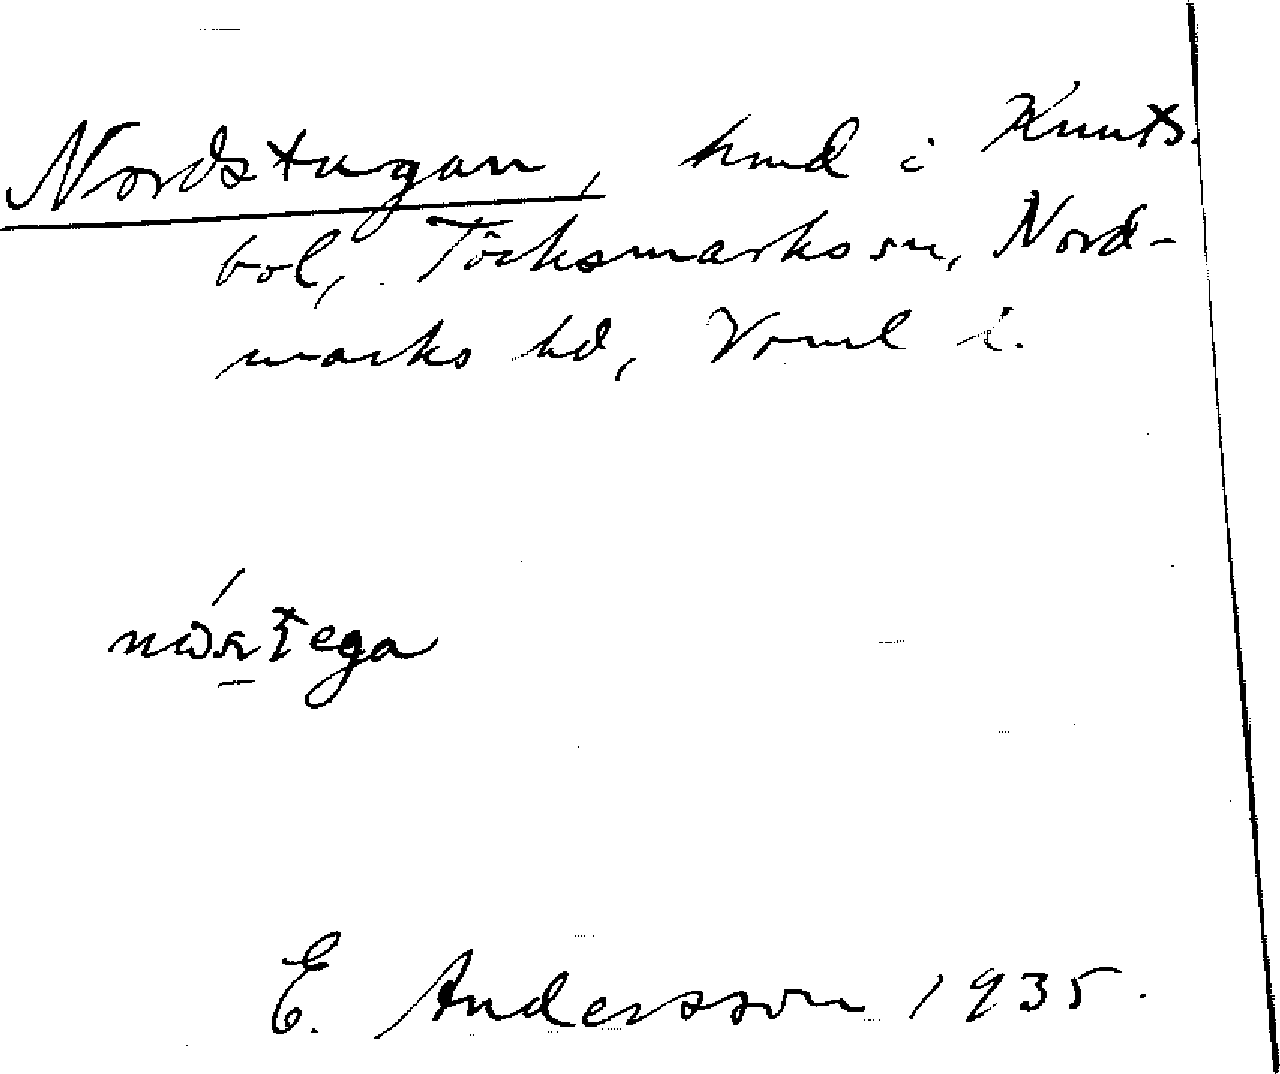 Nordstugan, hmd i Knuts-
bol, Töcksmarks sn, Nord-
marks hd, Vrml i.
E. Andersson 1935.